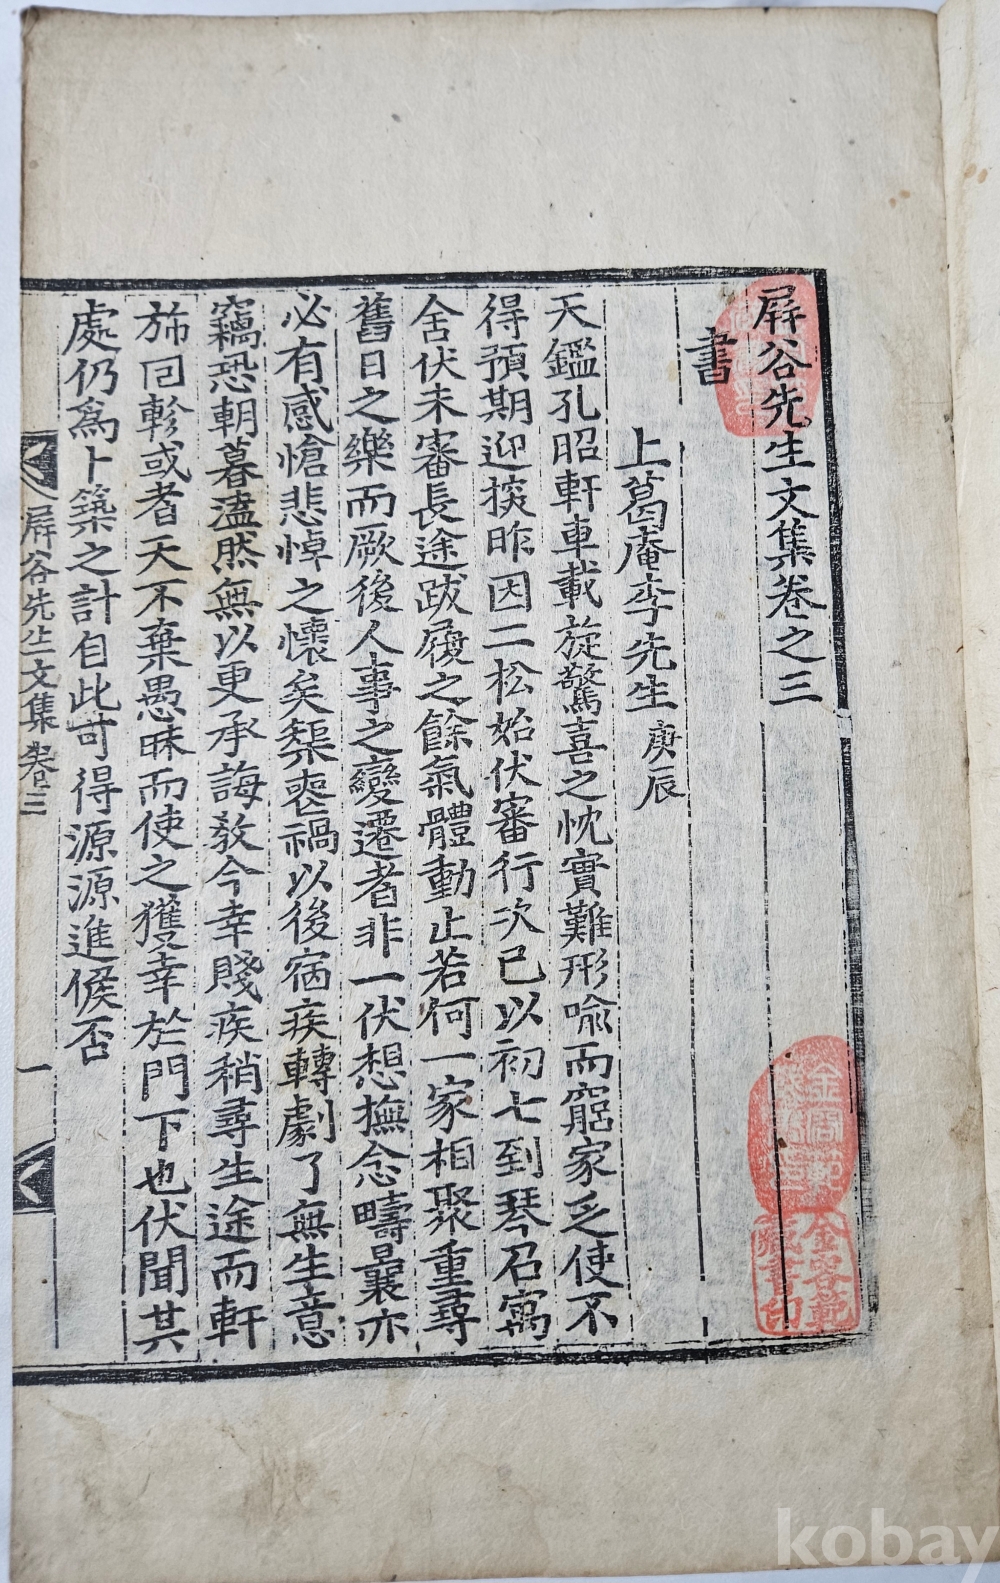 屛谷先生文集卷之三
書
上葛庵李先生 庚辰
天鑑孔昭軒車載旋驚喜之忱實難形喩而窮家乏使不
得預期迎
昨因二松始伏審行次已以初七到琴召寓
舍伏未審長途跋履之餘氣體動止若何一家相聚重尋
舊日之樂而厥後人事之變遷者非一伏想撫念疇曩亦
必有感愴悲悼之懷矣
喪禍以後宿疾轉劇了無生意
竊恐朝暮溘然無以更承誨敎今幸賤疾稍尋生途而軒
斾回軫或者天不棄愚昧而使之獲幸於門下也伏聞其
處仍爲卜築之計自此可得源源進候否
屛谷先生文集 卷三
一
金周範
金容範
藏書印
kobay